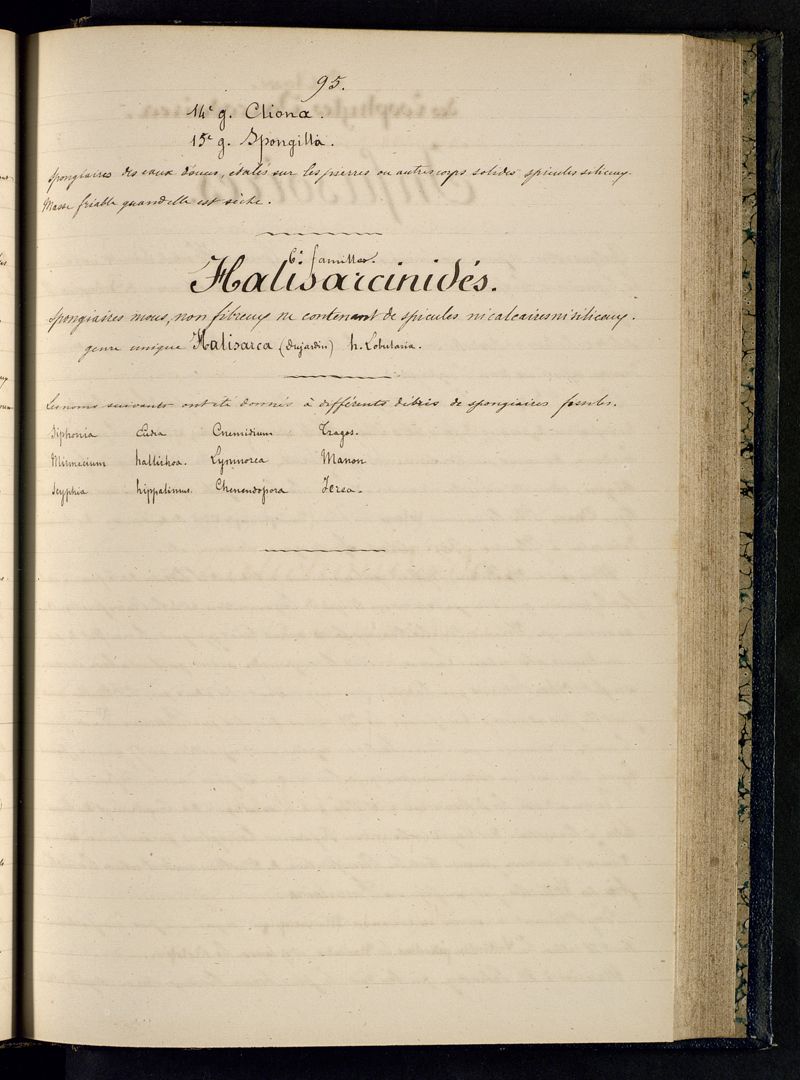 95.
14e g. Cliona.
15e g. Spongilla.
Spongiaires des eaux douces, étalés sur les pierres ou autres corps solides spicules siliceux.
Masse friable quand elle est sèche.
6e famille.
Halisarcinidés.
Spongiaires mous, non fibreux ne contenant de spicules ni calcaires ni siliceux.
genre unique Halisarca (Dujardin) h. Lobularia.
Les noms suivants ont été donnés à différents débris de spongiaires fossiles.
Siphonia Eudea Cnemidium Tragos.
Mirmecium hallirhoa. Lymnorea Manon
Scyphia hippalimus. Chenendopora Jerea.